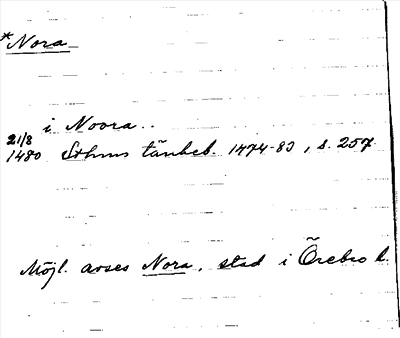 *Nora
i Noora..
21/8
1480 Sthms tänkeb. 1474-83, s. 257.
Möjl. avses Nora, stad i Örebro l.